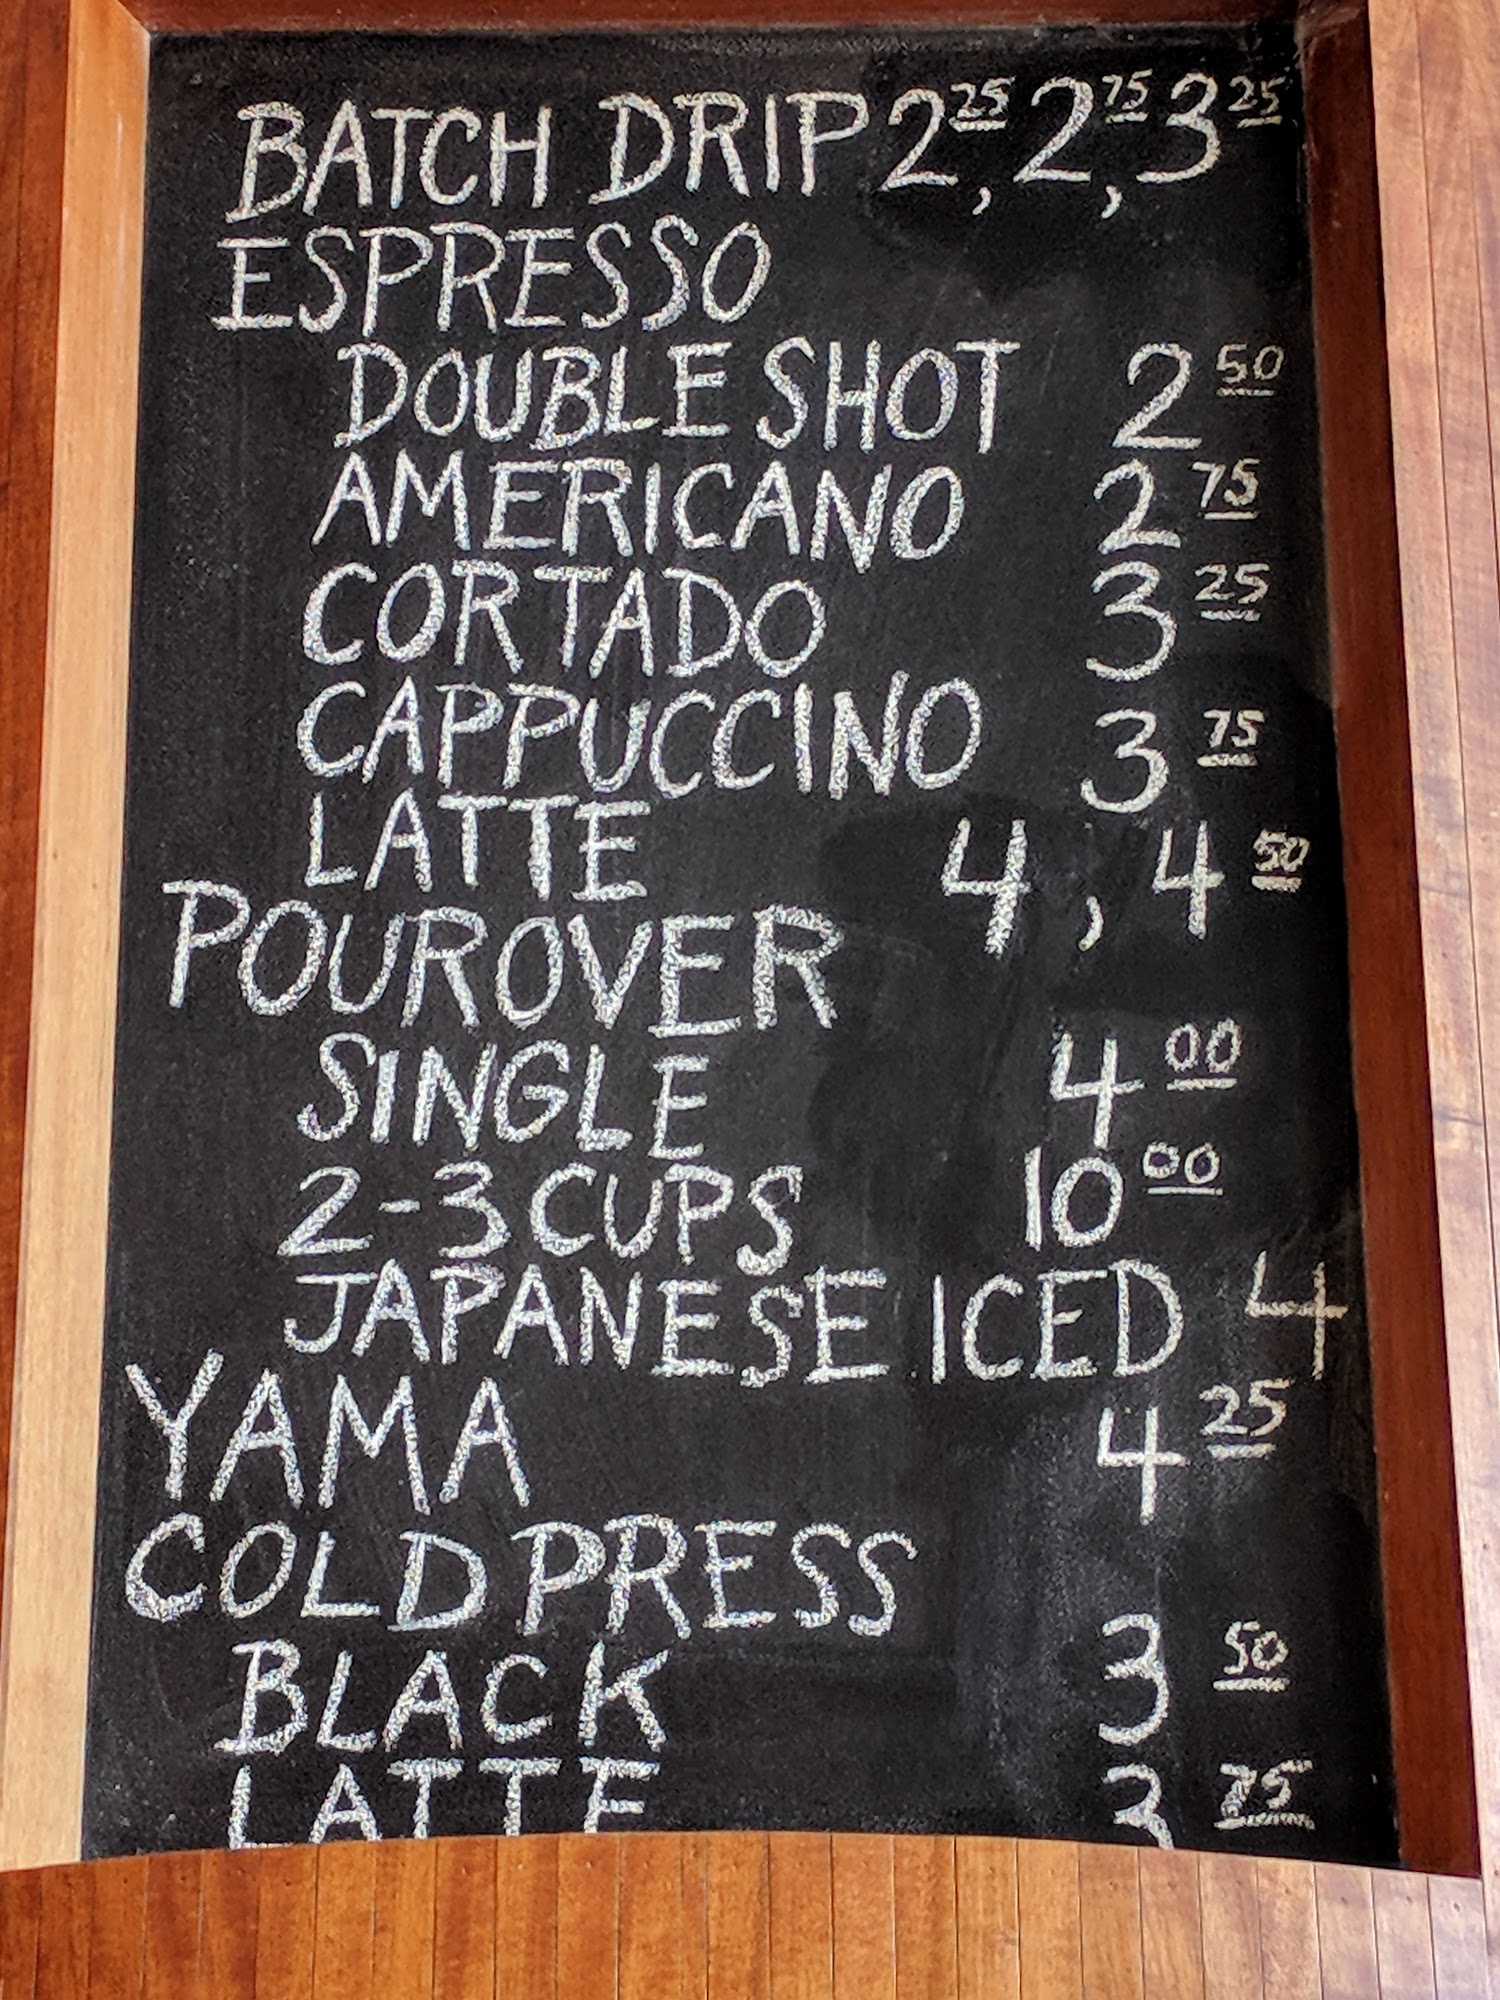 BATCH DRIP 2 25, 2 75, 3 25
ESPRESSO
DOUBLE SHOT 2 50
AMERICANO 2 75
CORTADO 3 25
CAPPUCCINO 3 75
LATTE 4, 4 50
POUROVER
SINGLE 4 00
2-3 CUPS 10 00
JAPANESE ICED 4
YAMA 4 25
COLD PRESS
BLACK 3 50
LATTE 3 75